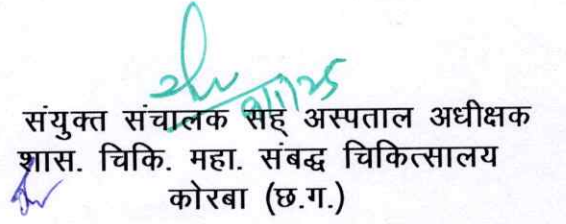 संयुक्त संचालक सह् अस्पताल अधीक्षक
शास. चिकि. महा. संबद्ध चिकित्सालय
कोरबा (छ.ग.)